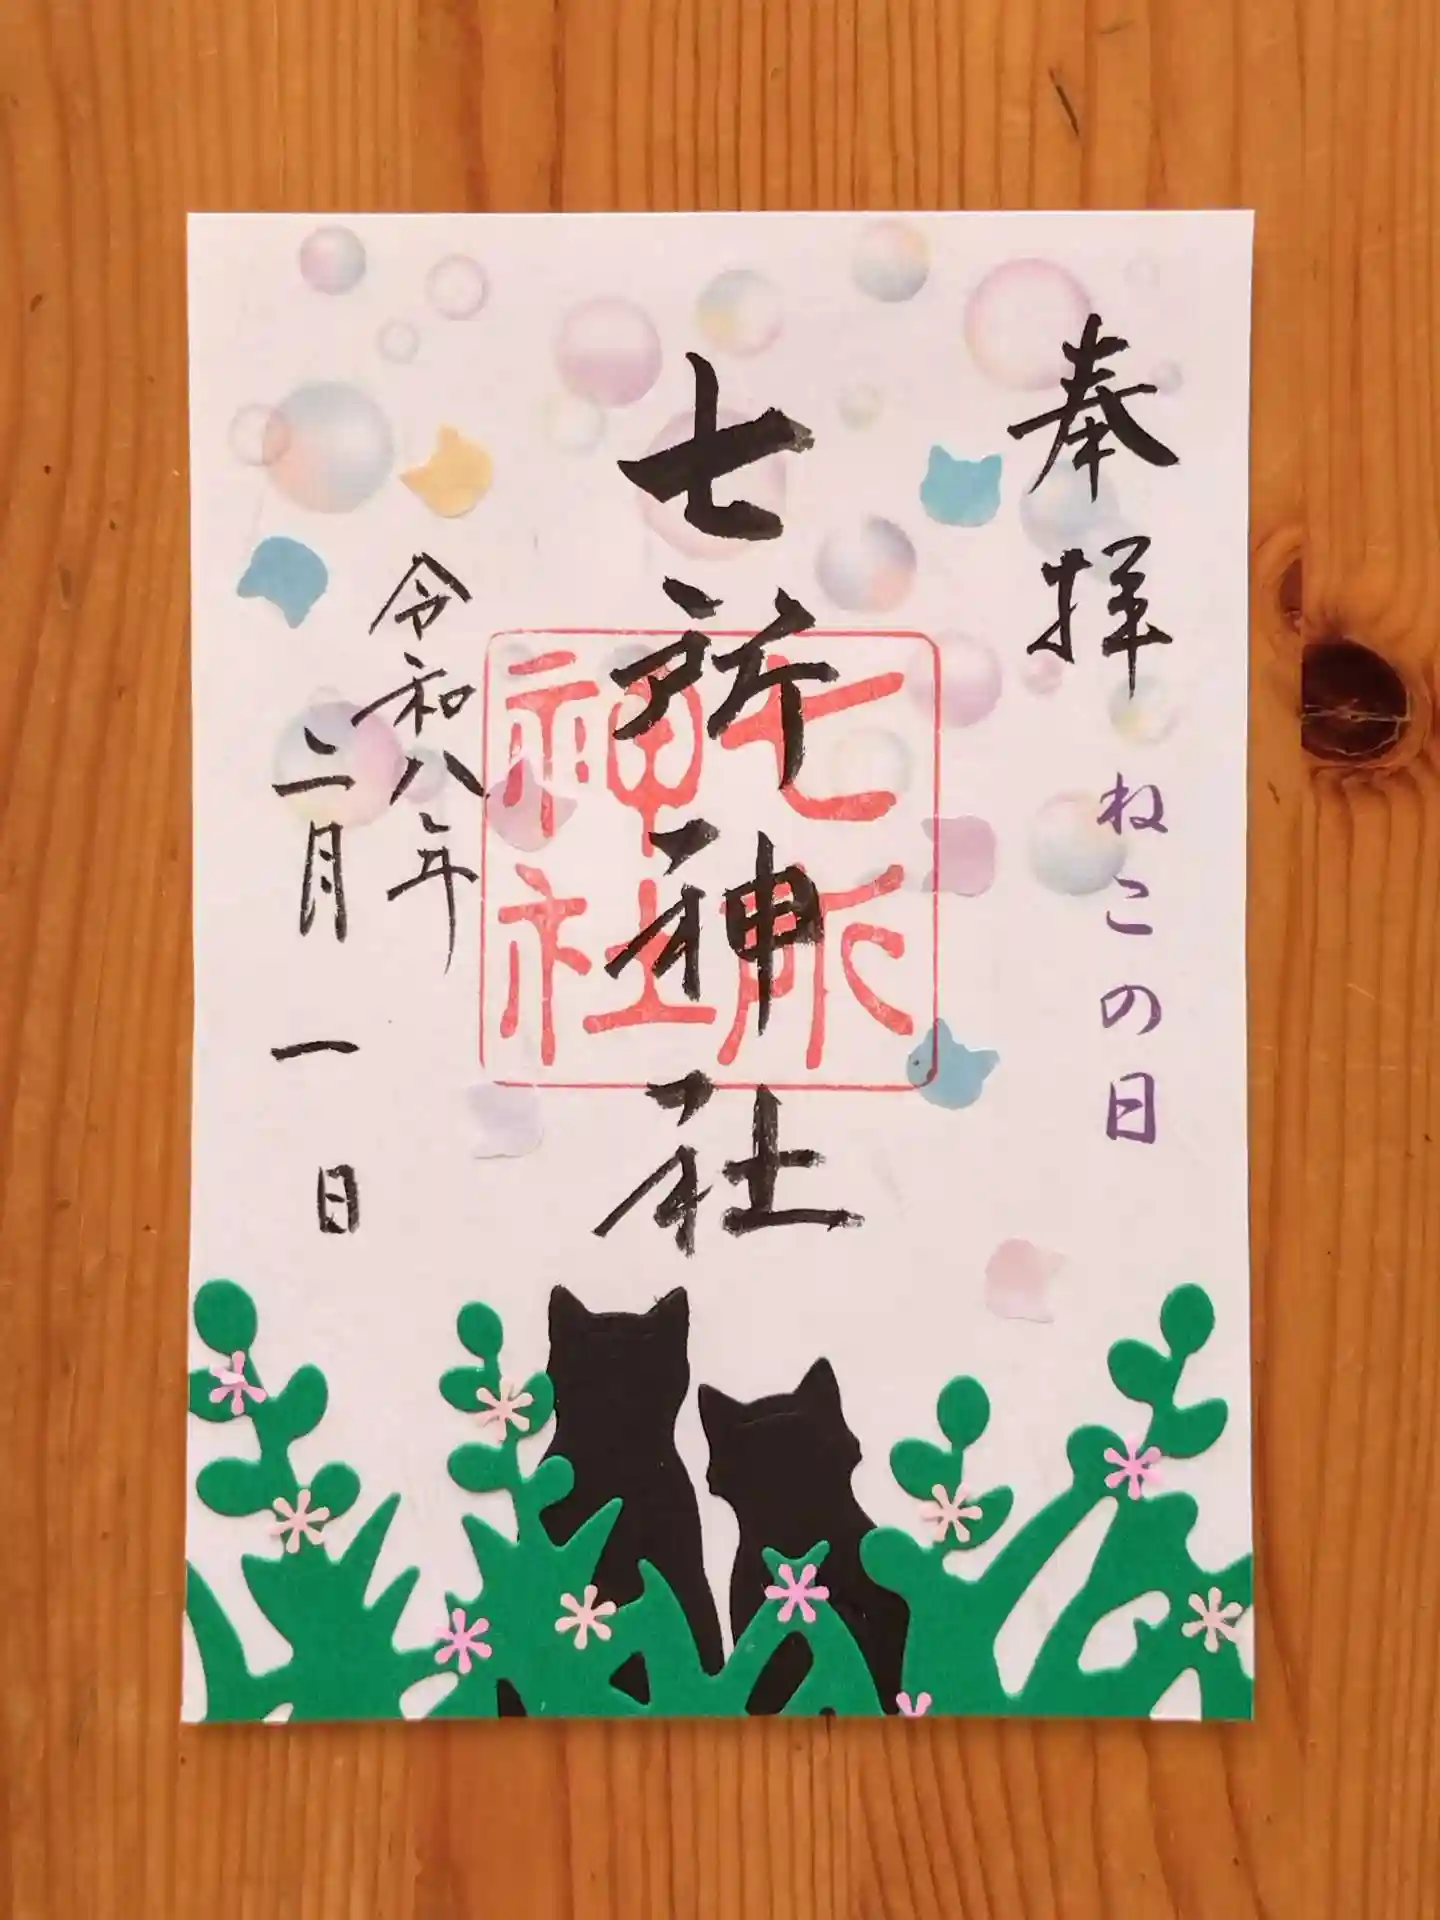 奉拝
ねこの日
七所神社
七所神社
令和八年
二月一日